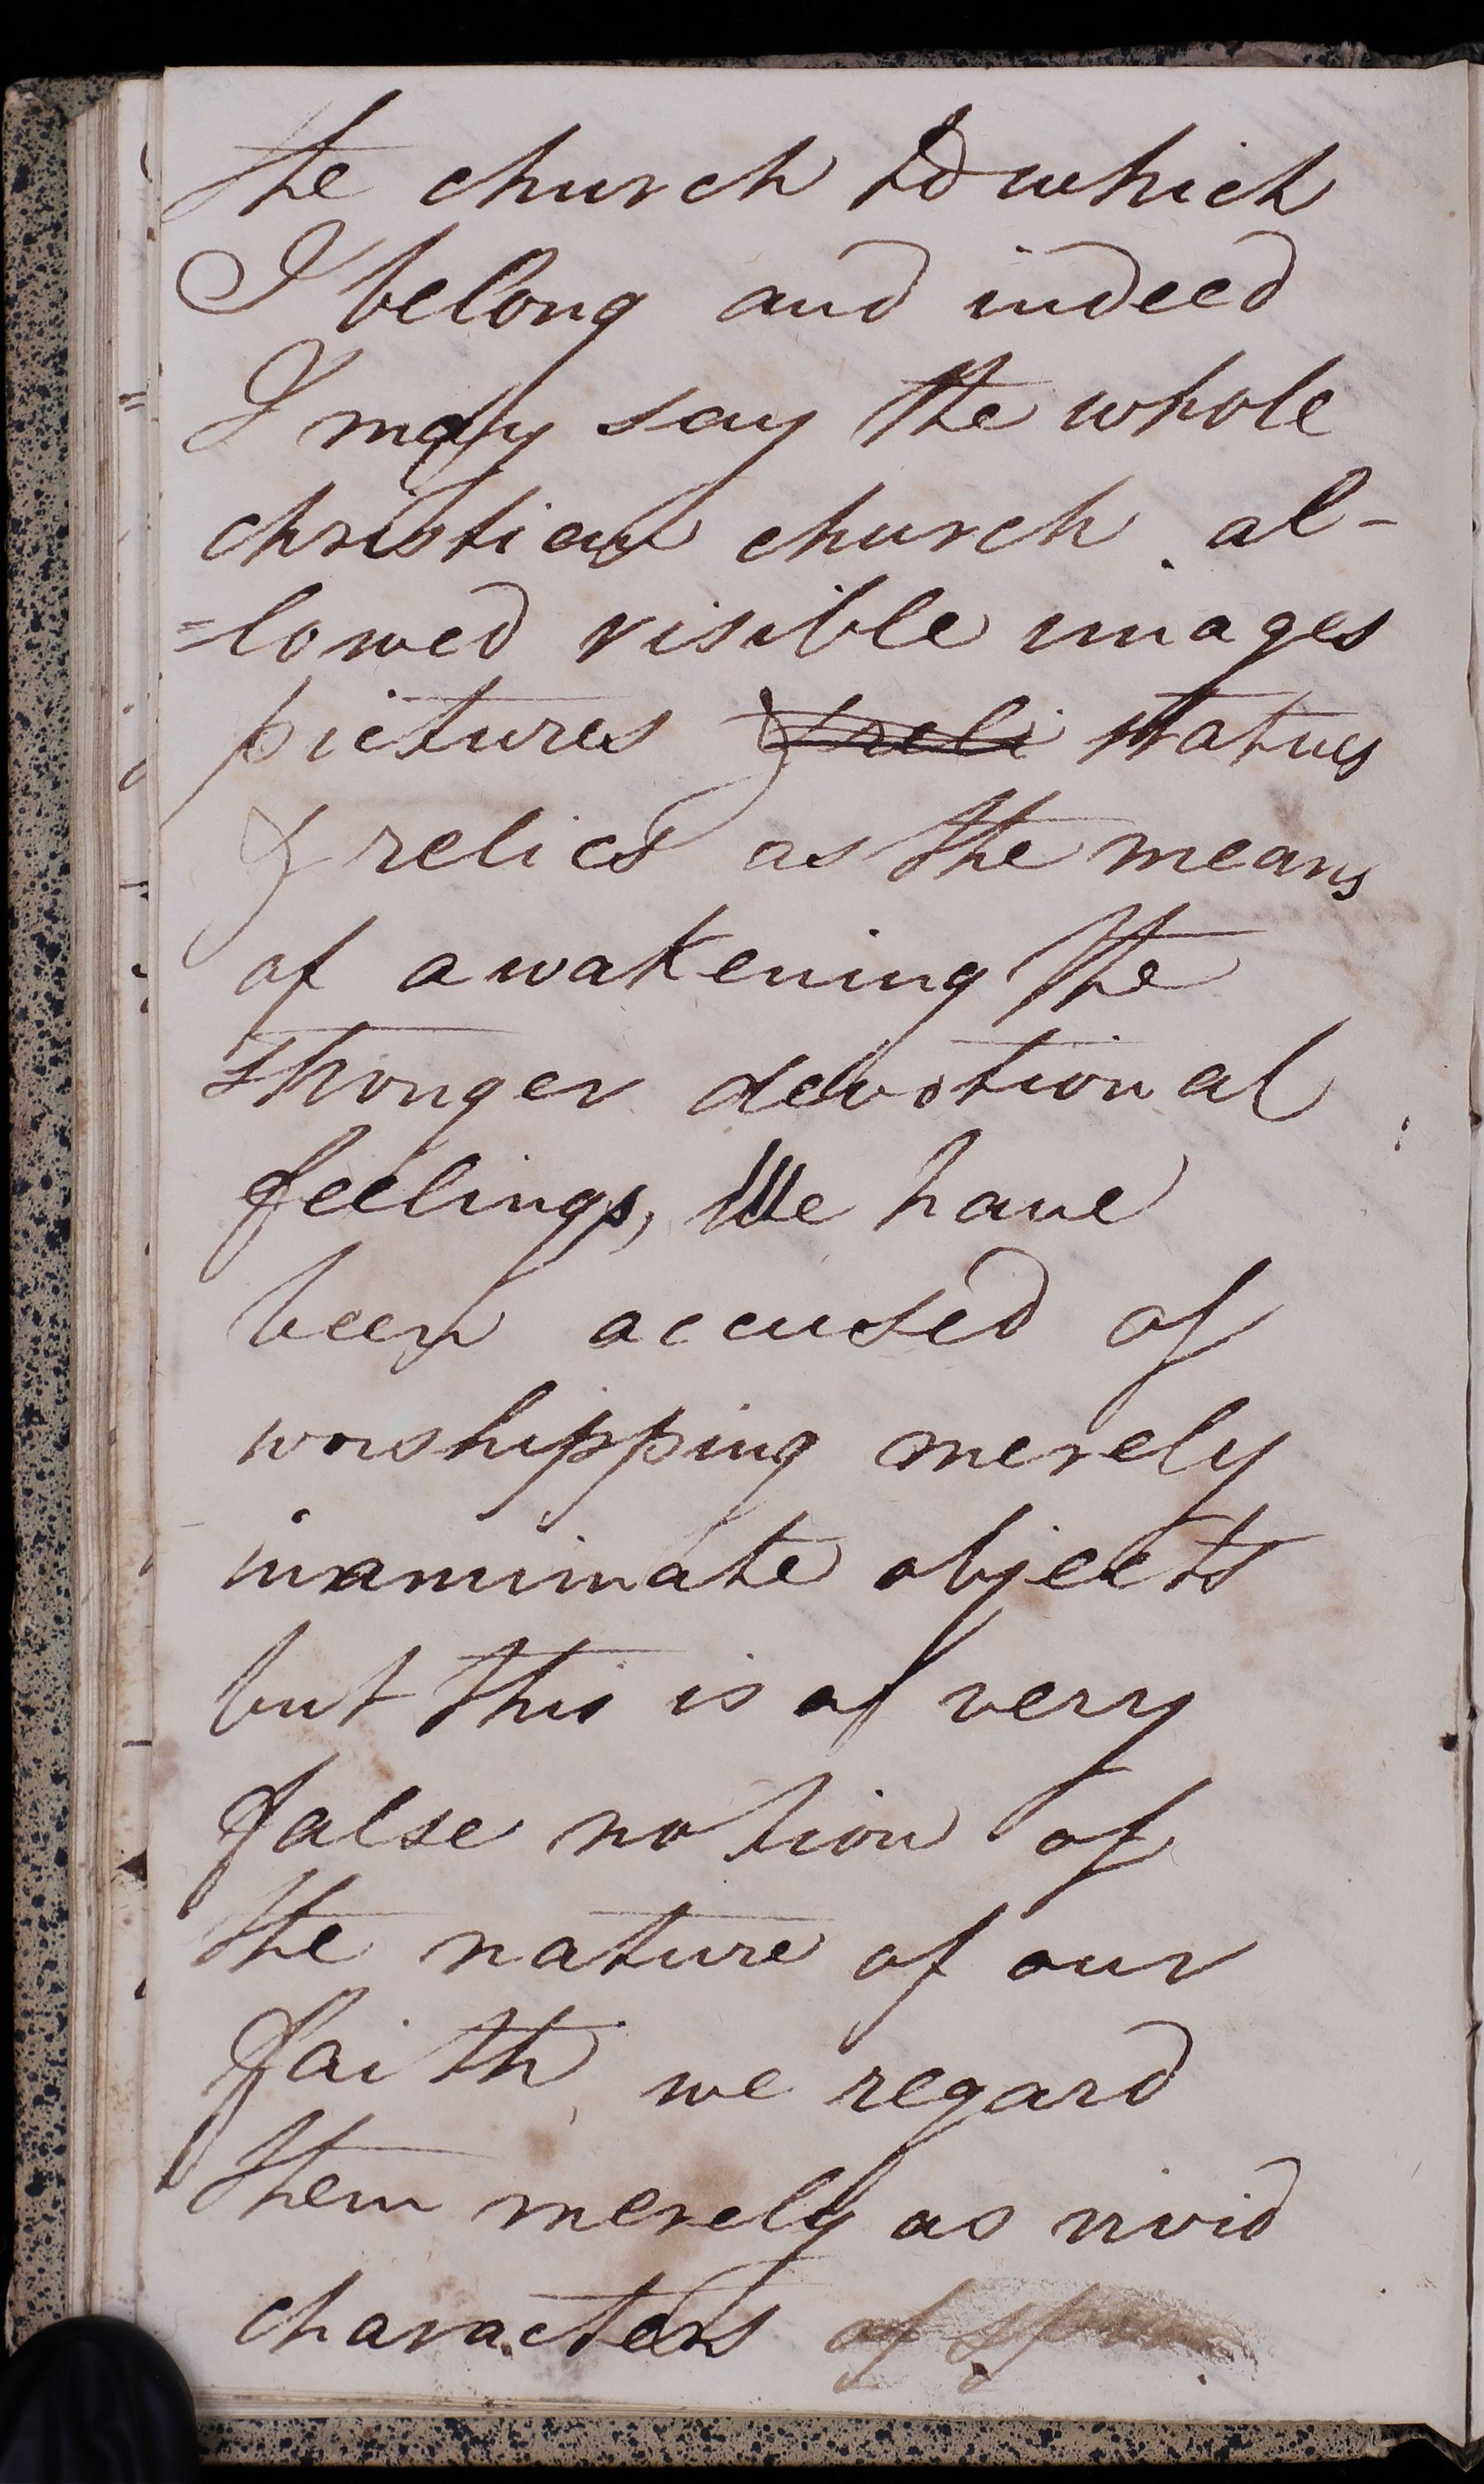 the church to which
I belong and indeed
I may say the whole
christian church al-
=lowed visible images
pictures & reli statues
& relics as the means
of awakening the
stronger devotional
feelings, We have
been accused of
worshipping merely
inanimate objects
but this is a very
false notion of
the nature of our
faith, we regard
them merely as vivid
characters of